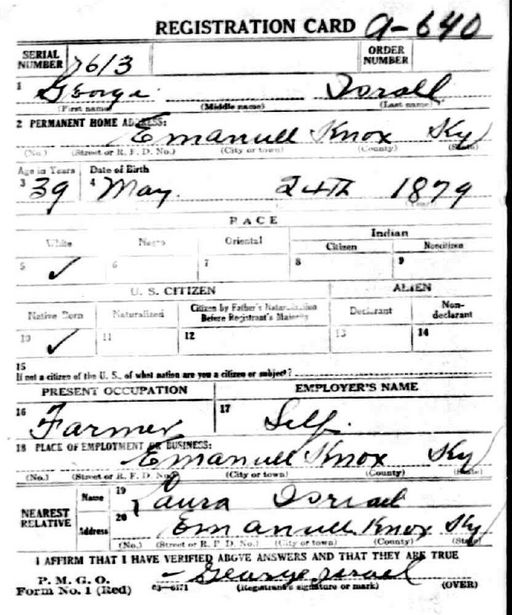 REGISTRATION CARD A-640
SERIAL NUMBER 2613 ORDER NUMBER
1 George Israel
(First name) (Middle name) (Last name)
2 PERMANENT HOME ADDRESS: Emanuell Knox Ky
(No.) (Street or R. F. D. No.) (City or town) (County) (State)
Age in Years Date of Birth
3 39 4 May 24th 1879
RACE
White Negro Oriental Indian
Citizen Noncitizen
5 ✓ 6 7 8 9
U. S. CITIZEN ALIEN
Native Born Naturalized Citizen by Father's Naturalization Before Registrant's Majority Declarant Non-declarant
10 ✓ 11 12 13 14
15
If not a citizen of the U. S., of what nation are you a citizen or subject?
PRESENT OCCUPATION EMPLOYER'S NAME
16 Farmer 17 Self
18 PLACE OF EMPLOYMENT OR BUSINESS: Emanuell Knox Ky
(No.) (Street or R. F. D. No.) (City or town) (County) (State)
NEAREST RELATIVE Name 19 Laura Israel
Address 20 Emanuell Knox Ky
(No.) (Street or R. F. D. No.) (City or town) (County) (State)
I AFFIRM THAT I HAVE VERIFIED ABOVE ANSWERS AND THAT THEY ARE TRUE
P. M. G. O.
Form No. 1 (Red) George Israel
(Registrant's signature or mark) (OVER)